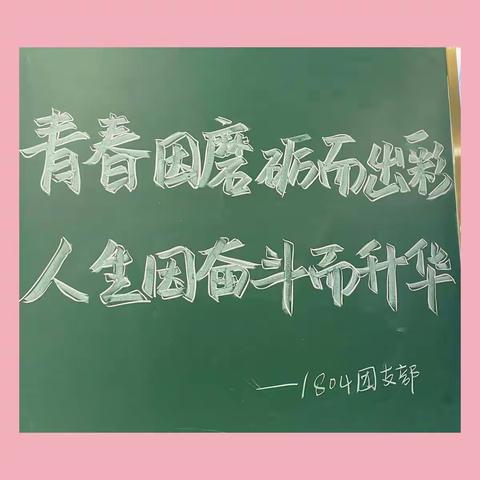 青春因磨砺而出彩
人生因奋斗而升华
—1804团支部